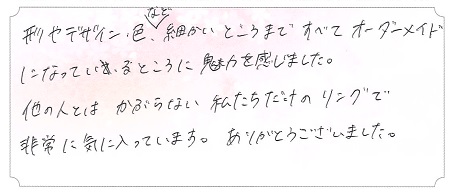 形やデザイン、色、など細かいところまですべてオーダーメイド
になっているところに魅力を感じました。
他の人とは かぶらない 私たちだけの リングで
非常に気に入っています。 ありがとうございました。